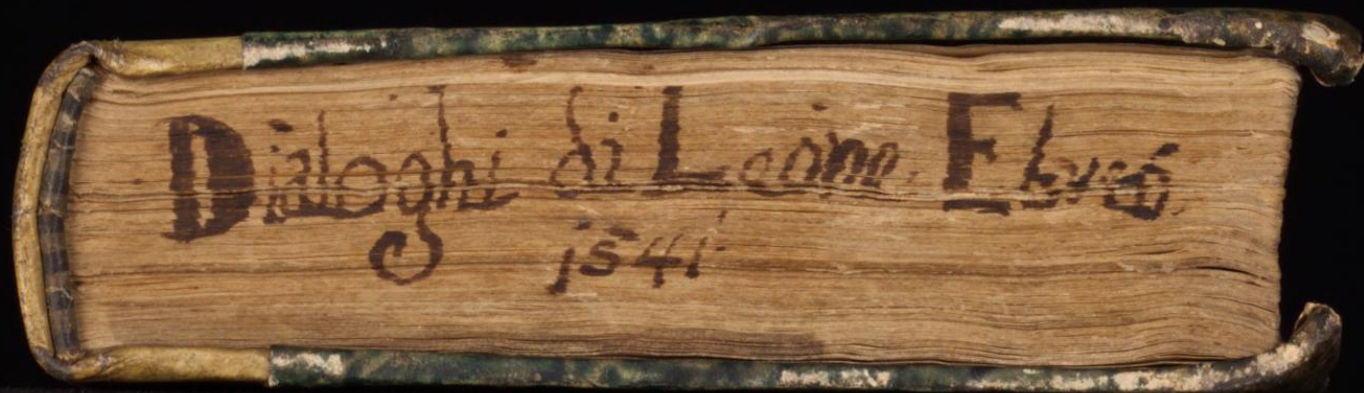 Dialoghi di Leone Ebreo
1541